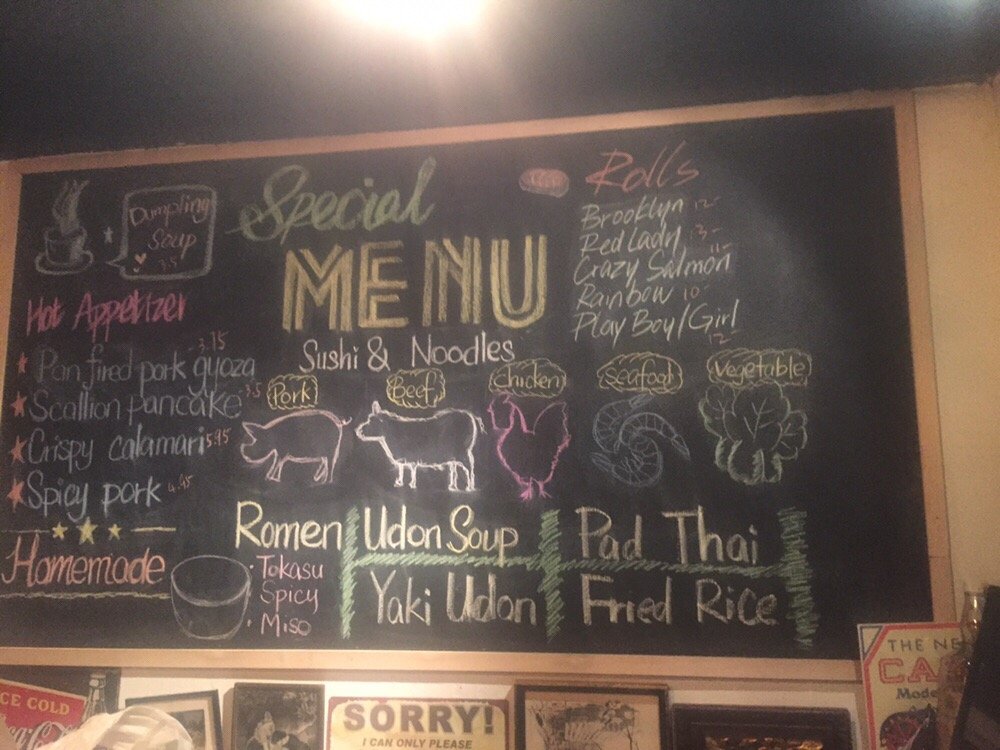 Dumpling
Soup
3.5
Special
MENU
Sushi & Noodles
Hot Appetizer
Pan fired pork gyoza 3.75
Scallion pancake 3.5
Crispy calamari 5.95
Spicy pork 4.95
Homemade
Rolls
Brooklyn 12-
Red Lady 13-
Crazy Salmon 11-
Rainbow 10-
Play Boy/Girl 12-
Pork
Beef
Chicken
Seafood
Vegetable
Romen
Tokasu
Spicy
Miso
Udon Soup
Yaki Udon
Pad Thai
Fried Rice
ICE COLD
SORRY!
I CAN ONLY PLEASE
THE NE
CA
Mode